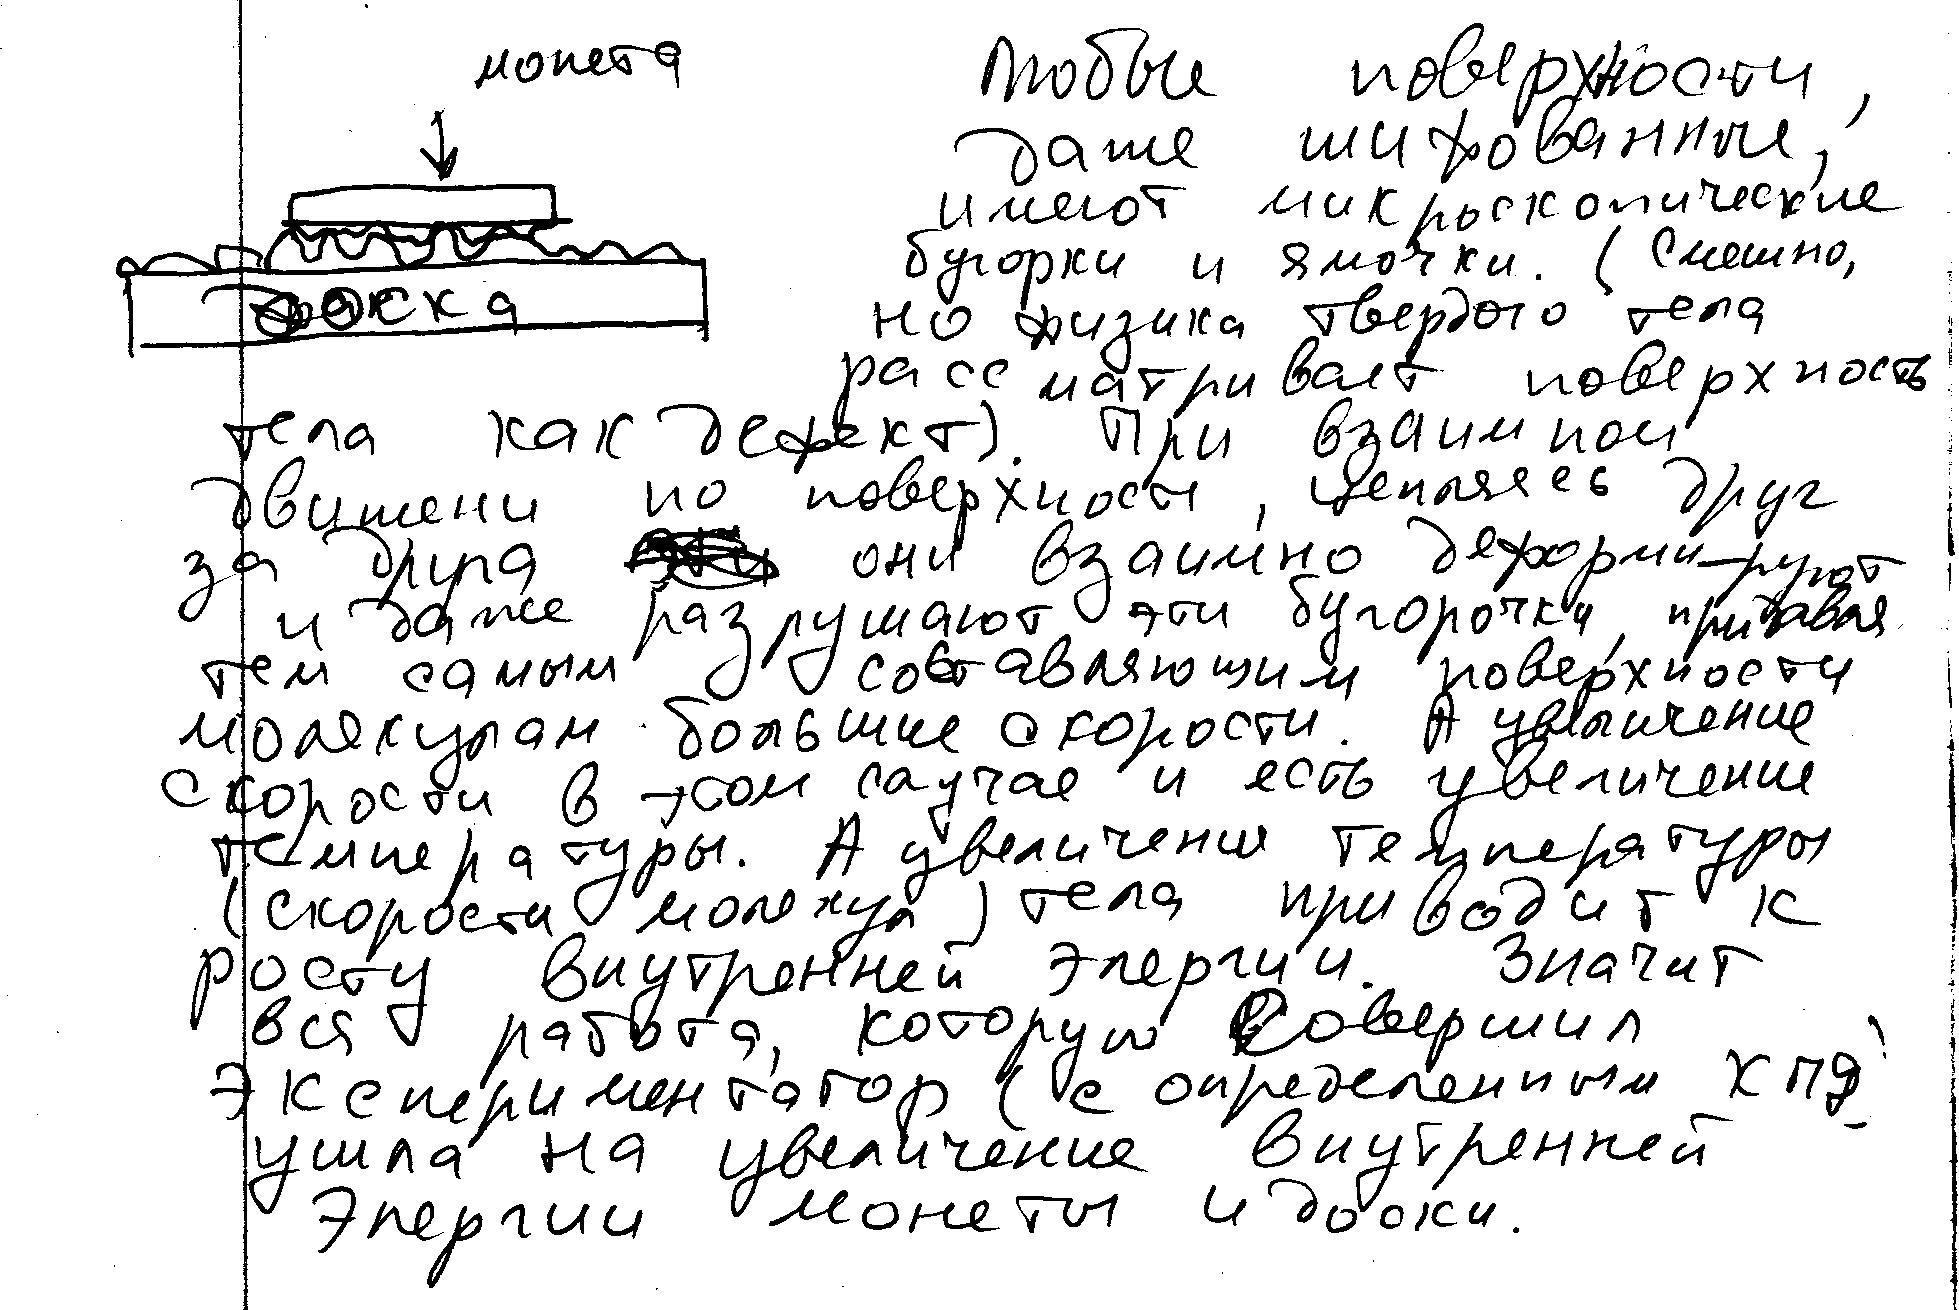 монета
Любые поверхности,
даже шифованные,
имеют микроскопические
бугорки и ямочки. (Смешно,
но физика твердого тела
доска
рассматривает поверхность
тела как дефект). При взаимном
движени по поверхности, цепляясь друг
за друга они взаимно деформируют
и даже разрушают эти бугорочки, придавая
тем самым составляющим поверхности
молекулам большие скорости. А увеличение
скорости в этом случае и есть увеличение
температуры. А увеличение температуры
(скорости молекул) тела приводит к
росту внутренней энергии. Значит
вся работа, которую совершил
экспериментатор (с определенным КПД)
ушла на увеличение внутренней
энергии монеты и доски.